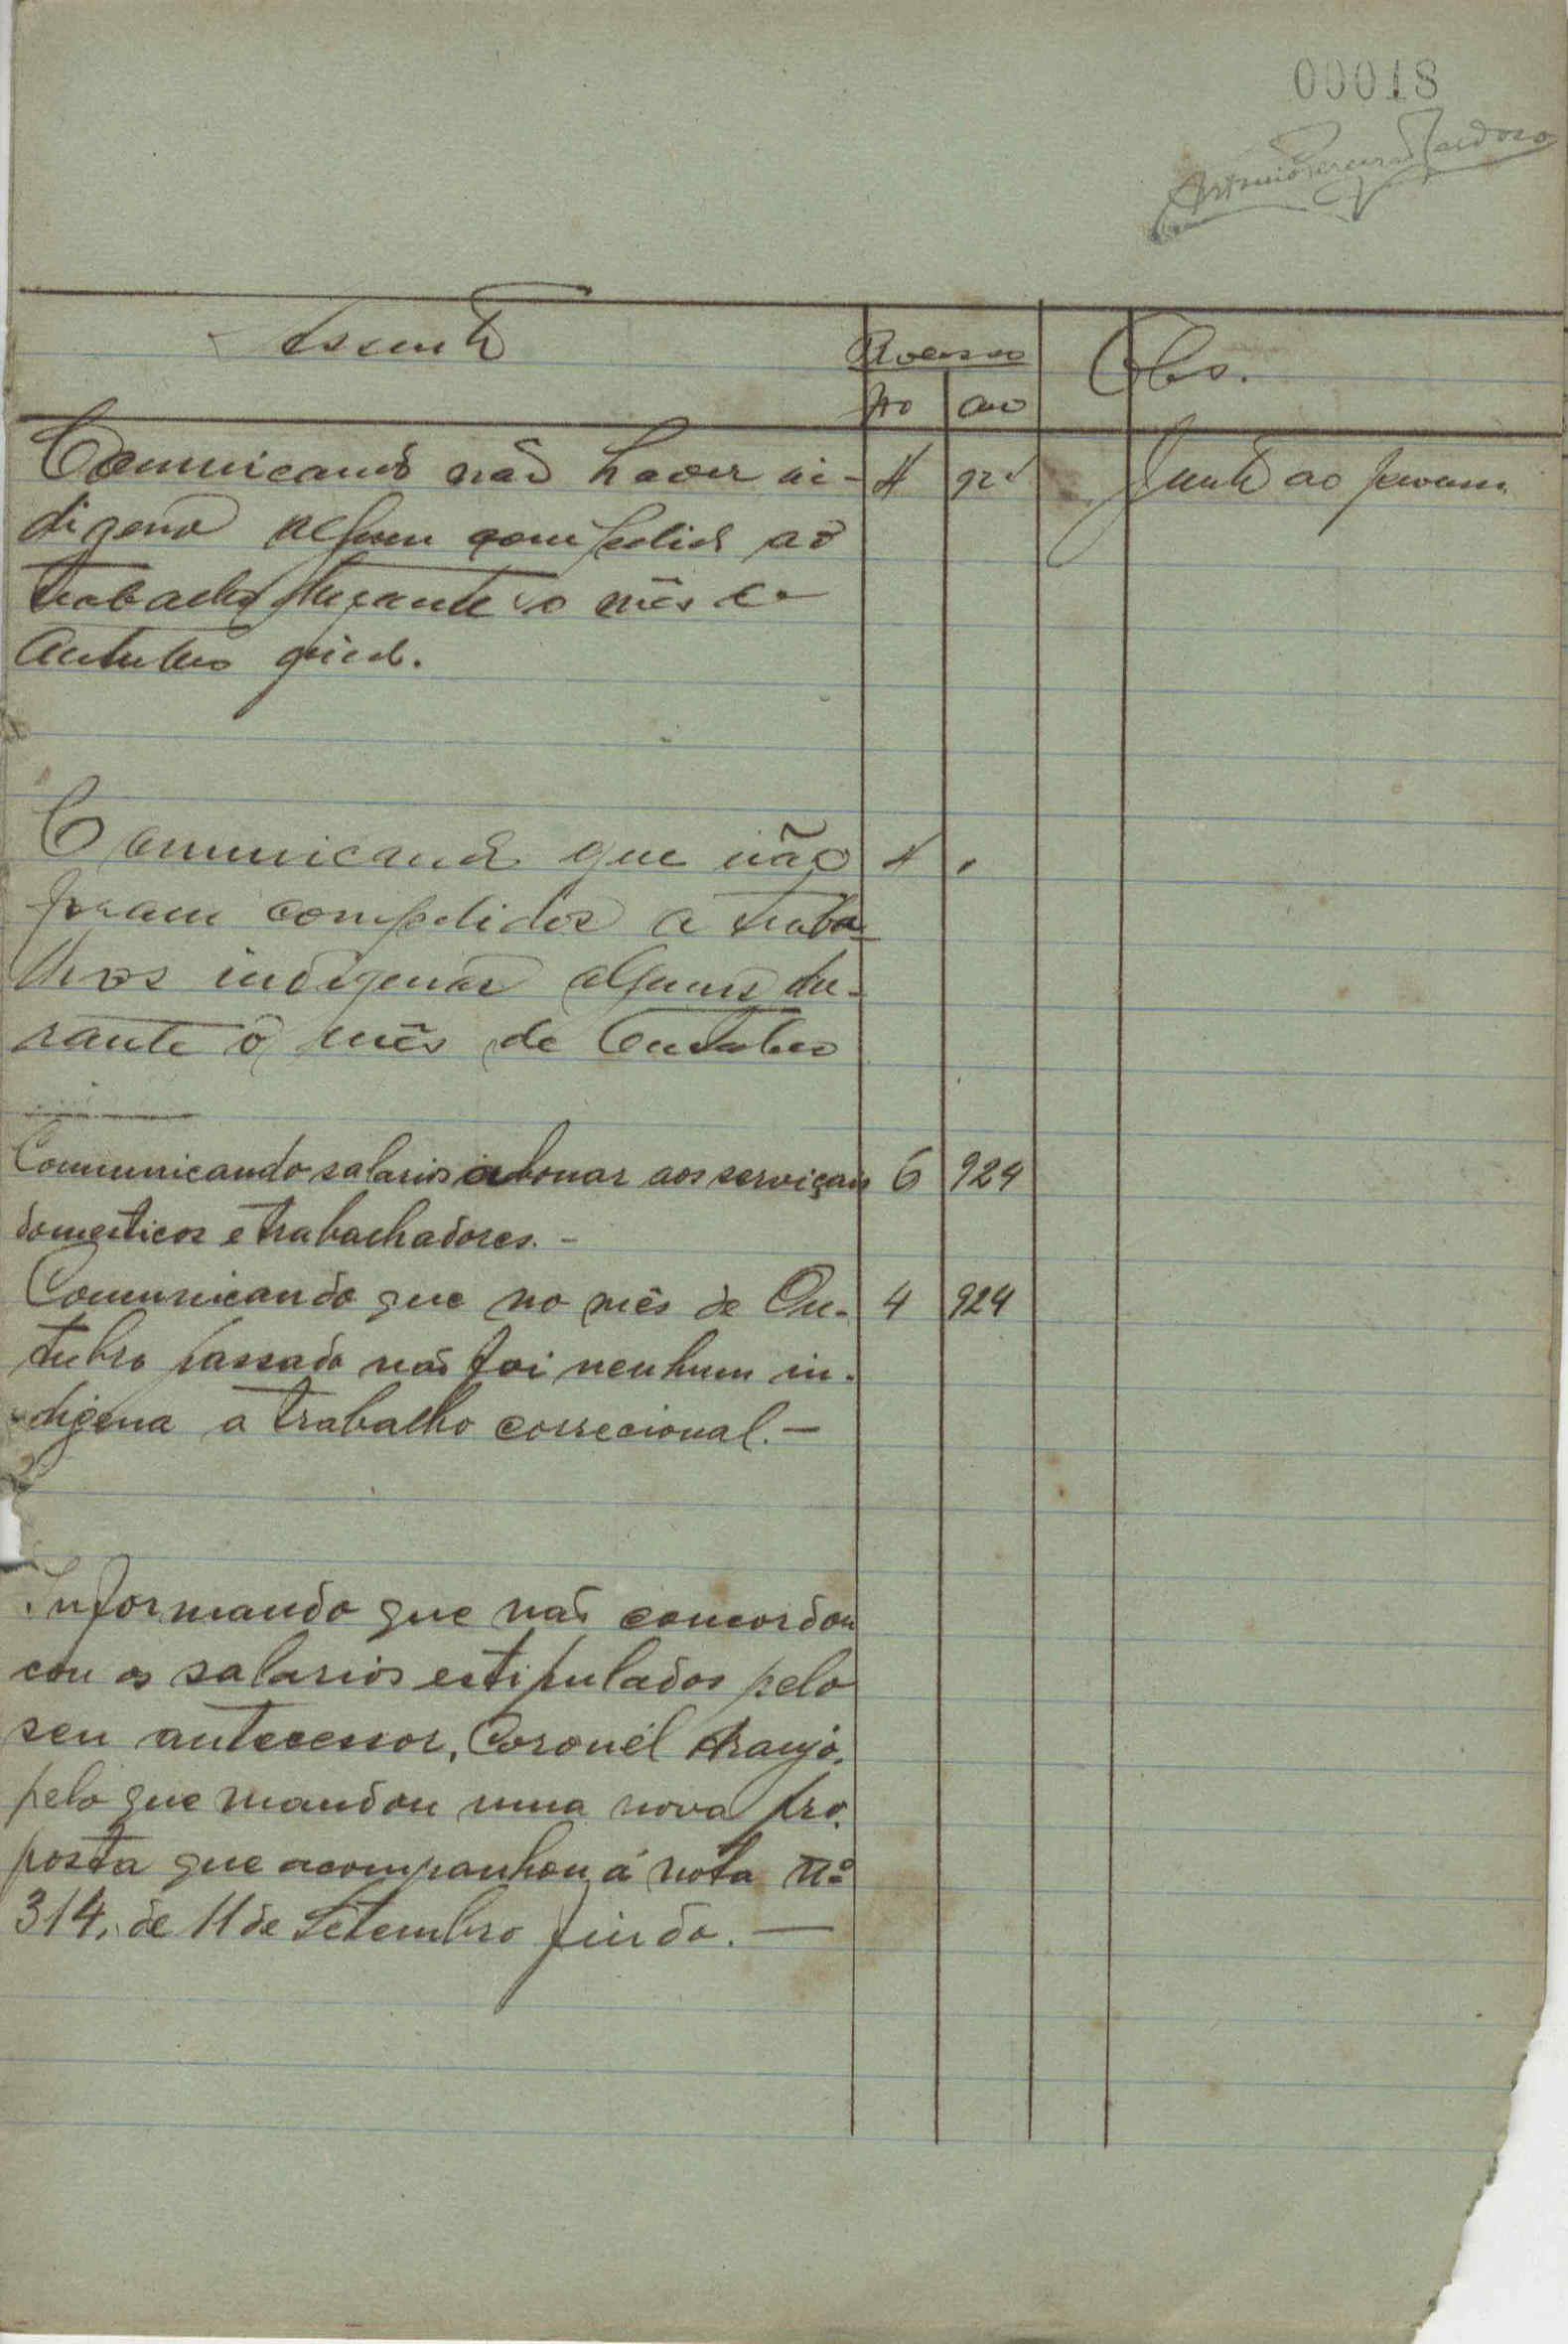 00018
Antonio Pereira Cardoso
Assunto
Processo
Obs.
No ano
Comunicando não haver in- 4 924 Junto ao processo
digena algum compelido ao
trabalho durante o mês de
Outubro findo.
Comunicando que não 4 "
foram compelidos a traba-
lhos indigenas alguns du-
rante o mês de Outubro
Communicando salarios abonar aos serviçais 6 924
domesticos e trabalhadores. -
Comunicando que no mês de Ou- 4 924
tubro passado não foi nenhum in-
digena a trabalho correcional. —
Informando que não concordou
com os salarios estipulados pelo
seu antecessor, Coronél Araujo,
pelo que mandou uma nova pro-
posta que acompanhou á nota nº
314, de 11 de Setembro findo. —